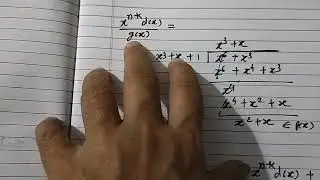 x^{n-k} d(x) / g(x) =
x³ + x
x³ + x + 1 | x⁶ + x³
x⁶ + x⁴ + x³
x⁴
x⁴ + x² + x
x² + x
x^{n-k} d(x) +